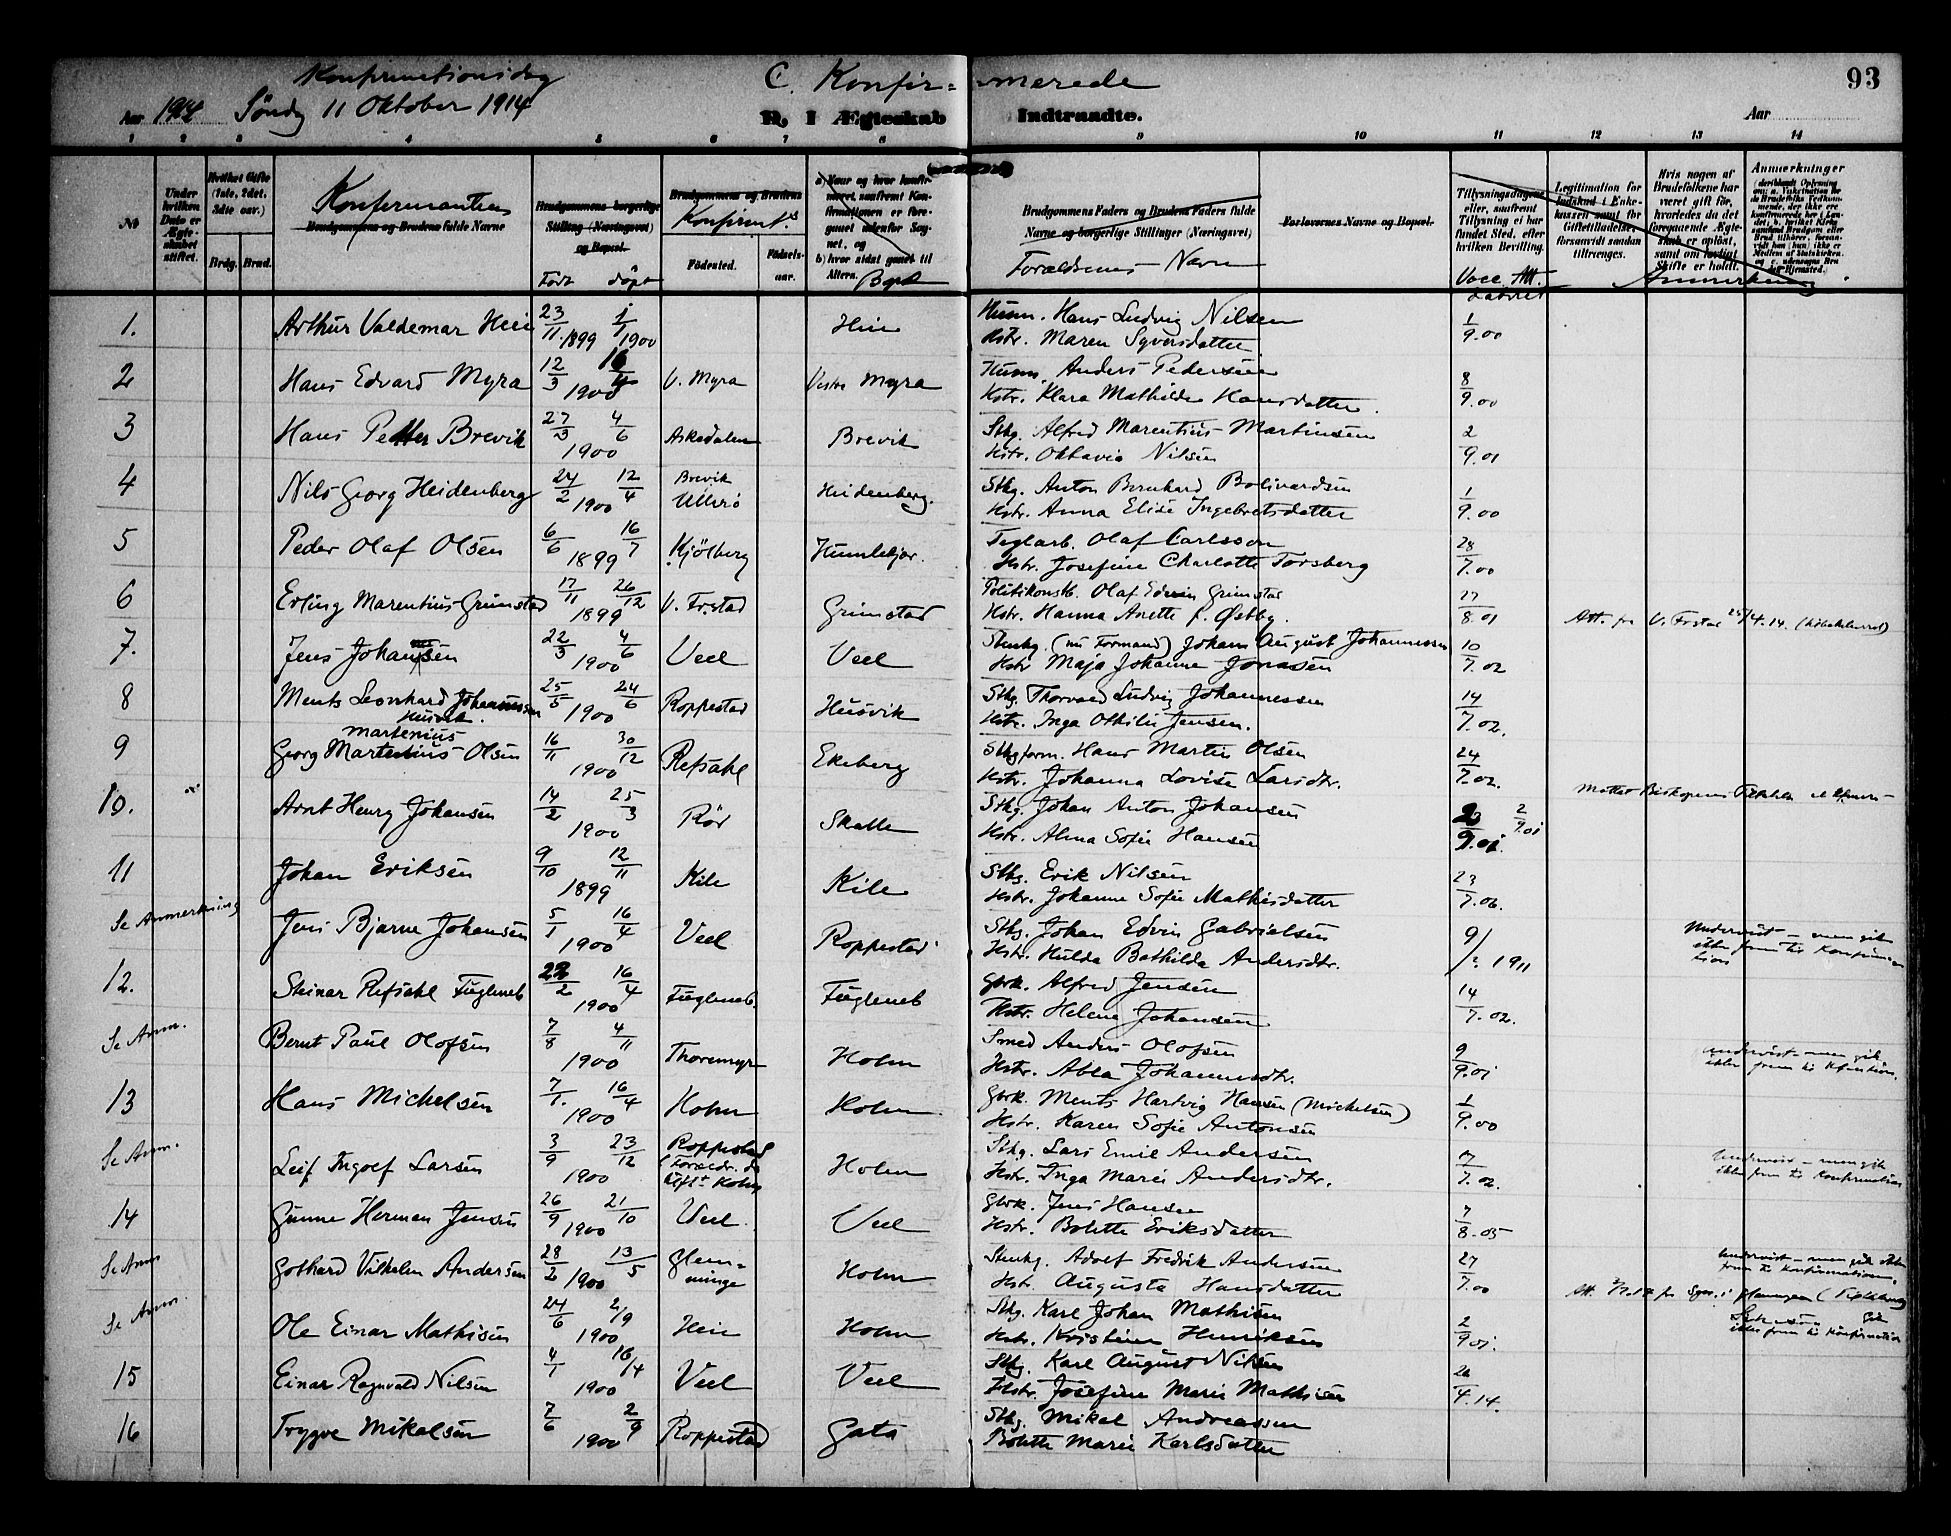 Konfirmationsdag
Aar 1914 Søndag 11 Oktober 1914
C. Konfir=merede
93
B. I Ægteskab Indtraadte.
Aar
1 2 3 4 5 6 7 8 9 10 11 12 13 14
№
Under hvilken Dato er Ægteskabet stiftet.
Hvilket Gifte (1ste, 2det, 3die osv.)
Brdg. Brud.
Konfirmantens
Brudgommens og Brudens fulde Navne
Brudgommens borgerlige Stilling (Næringsvei) og Bopæl.
Født døpt
Brudgommens og Brudens
Konfirmt.s
Fødested.
Fødselsaar.
Bopæl
Brudgommens Faders og Brudens Faders fulde Navne og borgerlige Stillinger (Næringsvei)
Forældrenes Navn
Forlovernes Navne og Bopæl.
Tillysningsdagene eller, saafremt Tillysning ei har fundet Sted, efter hvilken Bevilling.
Vacc. Att.
Legitimation for Indskud i Enkekassen samt for Giftetilladelse, forsaavidt saadan tiltrænges.
Hvis nogen af Brudefolkene har været gift før, hvorledes da det foregaaende Ægteskab er opløst, samt om lovligt Skifte er holdt.
Anmerkninger
Anmerkning
1. Arthur Valdemar Heie 23/11 1899 1/1 1900 Heie Husm. Hans Ludvig Nilsen 1/9.00
Hstr. Maren Syversdatter
2 Hans Edvard Myra 12/3 16/4 1900 V. Myra Vestre Myra Husm. Anders Pedersen 8/9.00
Hstr. Klara Mathilde Hansdatter.
3 Hans Petter Brevik 27/3 4/6 1900 Askedalen Brevik Sthg. Alfred Marentius Martinsen 2/9.01
Hstr. Oktavia Nilsen
4 Nils Georg Heidenberg 24/2 12/4 1900 Brevik Ullerö Heidenberg. Sthg. Anton Bernhard Bolivardsen 1/9.00
Hstr. Anna Elise Ingebretsdatter
5 Peder Olaf Olsen 6/6 16/7 1899 Kjölberg Humlekjær. Teglarb. Olaf Carlsson 28/7.00
Hstr. Josefine Charlotte Forsberg
6 Erling Marentius Grimstad 17/11 26/12 1899 V. Fr.stad Grimstad Politikonstb. Olaf Edwin Grimstad 27/8.01
Hstr. Hanna Anette f. Østby. Att. fra V. Frstad 25/4.14.
7. Jens Johansen 22/3 4/6 1900 Veel Veel Stenhg. (nu Formand) Johan August Johannessen 10/7.02
Hstr Maja Johanne Jonasen
8 Ments Leonhard Johannessen Husvik. 25/5 24/6 1900 Roppestad Husvik Sthg. Thorvald Ludvig Johannessen 14/7.02.
Hstr. Inga Othilie Jensen.
9 Georg Martenius Olsen 16/11 30/12 1900 Refsahl Ekeberg Sthgform. Hans Martin Olsen 24/7.02.
martenius
Hstr. Johanna Lovise Larsdtr.
10. Arnt Henry Johansen 14/2 25/3 1900 Rör Skalle Sthg. Johan Anton Johansen 2/9.01
Hstr. Alma Sofie Hansen
11 Johan Eriksen 9/10 12/11 1899 Kile Kile Sthg. Erik Nilsen 23/7.06.
Hstr. Johanne Sofie Mathisdatter
Se Anmerkning Jens Bjarne Johansen 5/1 16/4 1900 Veel Roppestad Sthg. Johan Edvin Gabrielsen 9/2. 1911
Hstr. Hulda Bathilda Andersdtr. Undervist – men gik ikke frem til Konfirmation
12. Steinar Refsahl Fugleneb 22/2 16/4 1900 Fugleneb Fugleneb Gbrk. Alfred Jensen 14/7.02.
Hstr. Helene Johansen
Se Anm. Bernt Paul Olofsen 7/8 4/11 1900 Thoremyr Holm Smed Anders Olofsen 9/9.01
Hstr. Abla Johannesdtr. Undervist – men gik ikke frem til Kfirmation.
13 Hans Michelsen 7/1. 16/4 1900 Holm Holm Gbrk. Ments Hartvig Hansen (Michelsen) 1/9.00
Hstr. Karen Sofie Antonsen
Se Anm. Leif Ingolf Larsen 3/9 23/12 1900 Roppestad Holm Sthg. Lars Emil Andersen 7.02.
Hstr. Inga Marie Andersdtr. Undervist – men gik ikke frem til Konfirmation
14 Gunne Herman Jensen 26/9 21/10 1900 Veel Veel Gbrk. Jens Hansen 7/8.05
Hstr. Bolette Eriksdatter
Se Anm Gothard Vilhelm Andersen 28/2 13/5 1900 Glemminge Holm Stenhg. Adolf Fredrik Andersen 27/7.00
Hstr. Augusta Hansdatter Undervist – men gik ikke frem til Konfirmation.
Se Anm. Ole Einar Mathisen 24/6 2/9 1900 Heie Holm Sthg. Karl Johan Mathisen 2/9.01.
Hstr. Kristine Henriksen gik ikke frem til Konfirmation
15 Einar Ragnvald Nilsen 4/1 16/4 1900 Veel Veel Sthg. Karl August Nilsen 26/4.14.
Hstr. Josefine Marie Mathisen
16 Trygve Mikalsen 7/6 2/9 1900 Roppestad Gata Sthg. Mikal Andreassen
Bolette Marie Karlsdatter